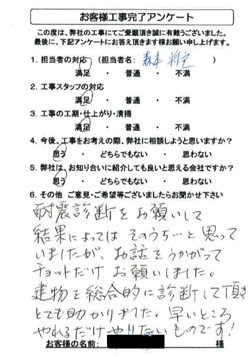 お客様工事完了アンケート
この度は、弊社の工事にてご愛顧頂き誠に有難うございました。
最後に、下記アンケートにお答え頂きます様お願い申し上げます。
1. 担当者の対応 (担当者名: 森本
満足 ・ 普通 ・ 不満
2. 工事スタッフの対応
満足 ・ 普通 ・ 不満
3. 工事の工期・仕上がり・清掃
満足 ・ 普通 ・ 不満
4. 今後、工事をお考えの際、弊社に相談しようと思いますか?
思う ・ どちらでもない ・ 思わない
5. 弊社は、お知り合いに紹介しても良いと思える会社ですか?
思う ・ どちらでもない ・ 思わない
6. その他 ご意見・ご希望等ございましたらお聞かせ下さい
耐震診断をお願いして
結果によってはそのうち…と思って
いましたが、お話をうかがって
チョットだけお願いしました。
建物を総合的に診断して頂き
とても助かりました。早いところ
やれるだけやりたいものです!
お客様の名前: 様